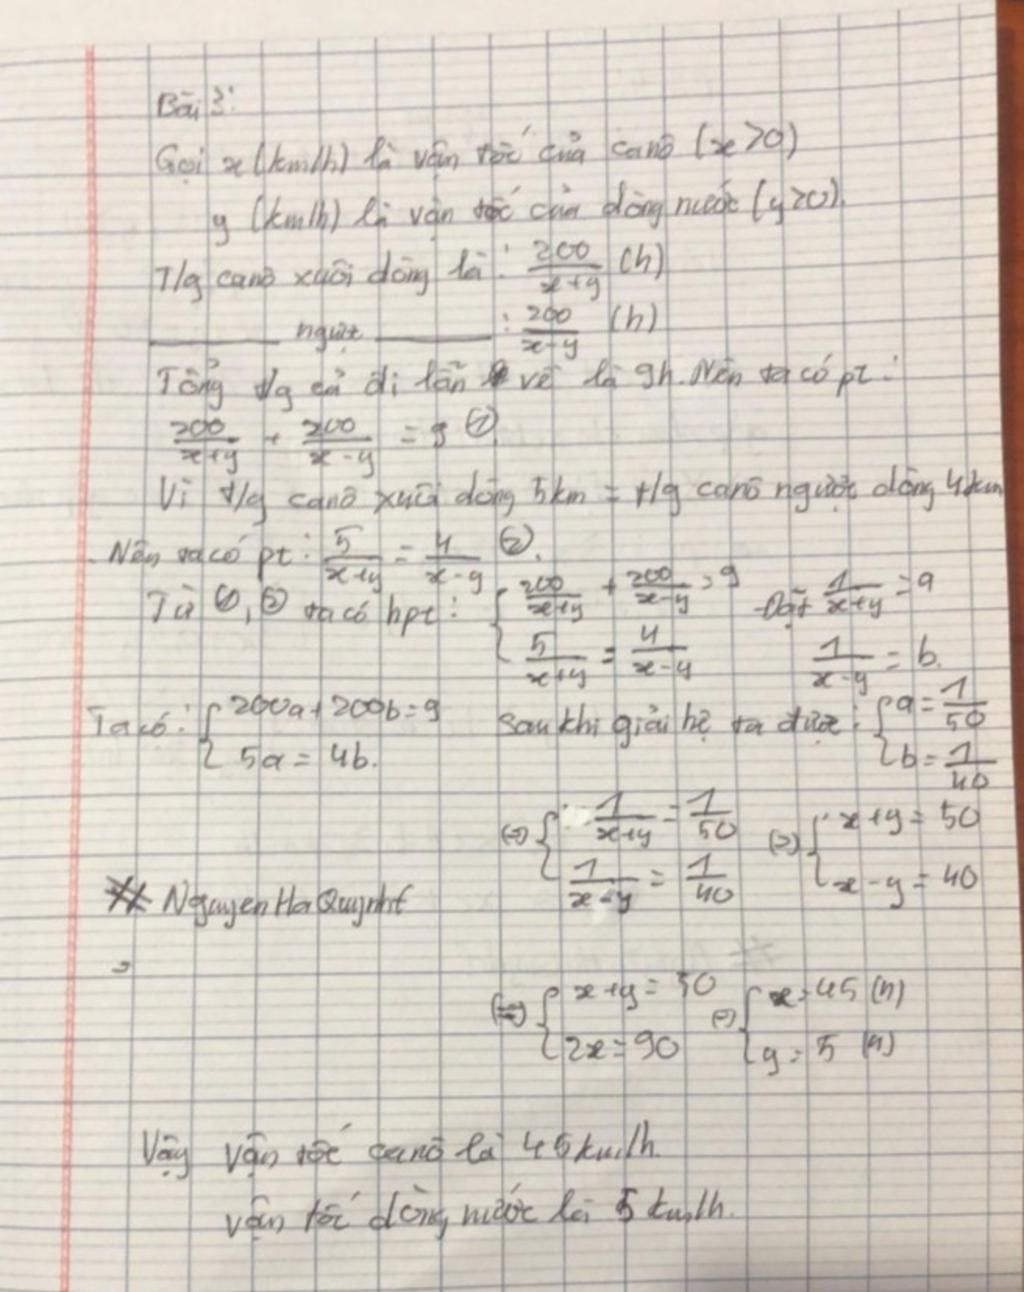 Bài 3:
Gọi x (km/h) là vận tốc của canô (x>0)
y (km/h) là vận tốc của dòng nước (y>0).
T/g canô xuôi dòng là : 200/(x+y) (h)
______ ngược ______ : 200/(x-y) (h)
Tổng t/g cả đi lẫn về là 9h. Nên ta có pt :
200/(x+y) + 200/(x-y) = 9 ①
Vì t/g canô xuôi dòng 5km = t/g canô ngược dòng 4km
Nên ta có pt : 5/(x+y) = 4/(x-y) ②.
Từ ①, ② ta có hpt : { 200/(x+y) + 200/(x-y) = 9 Đặt 1/(x+y) = a
5/(x+y) = 4/(x-y) 1/(x-y) = b.
Ta có : { 200a + 200b = 9 Sau khi giải hệ ta được : { a = 1/50
5a = 4b. b = 1/40
(=) { 1/(x+y) = 1/50 (=) { x+y = 50
1/(x-y) = 1/40 x-y = 40
# NguyenHaQuynht
(=) { x+y = 50 (=) { x = 45 (n)
2x = 90 y = 5 (n)
Vậy vận tốc canô là 45 km/h.
vận tốc dòng nước là 5 km/h.